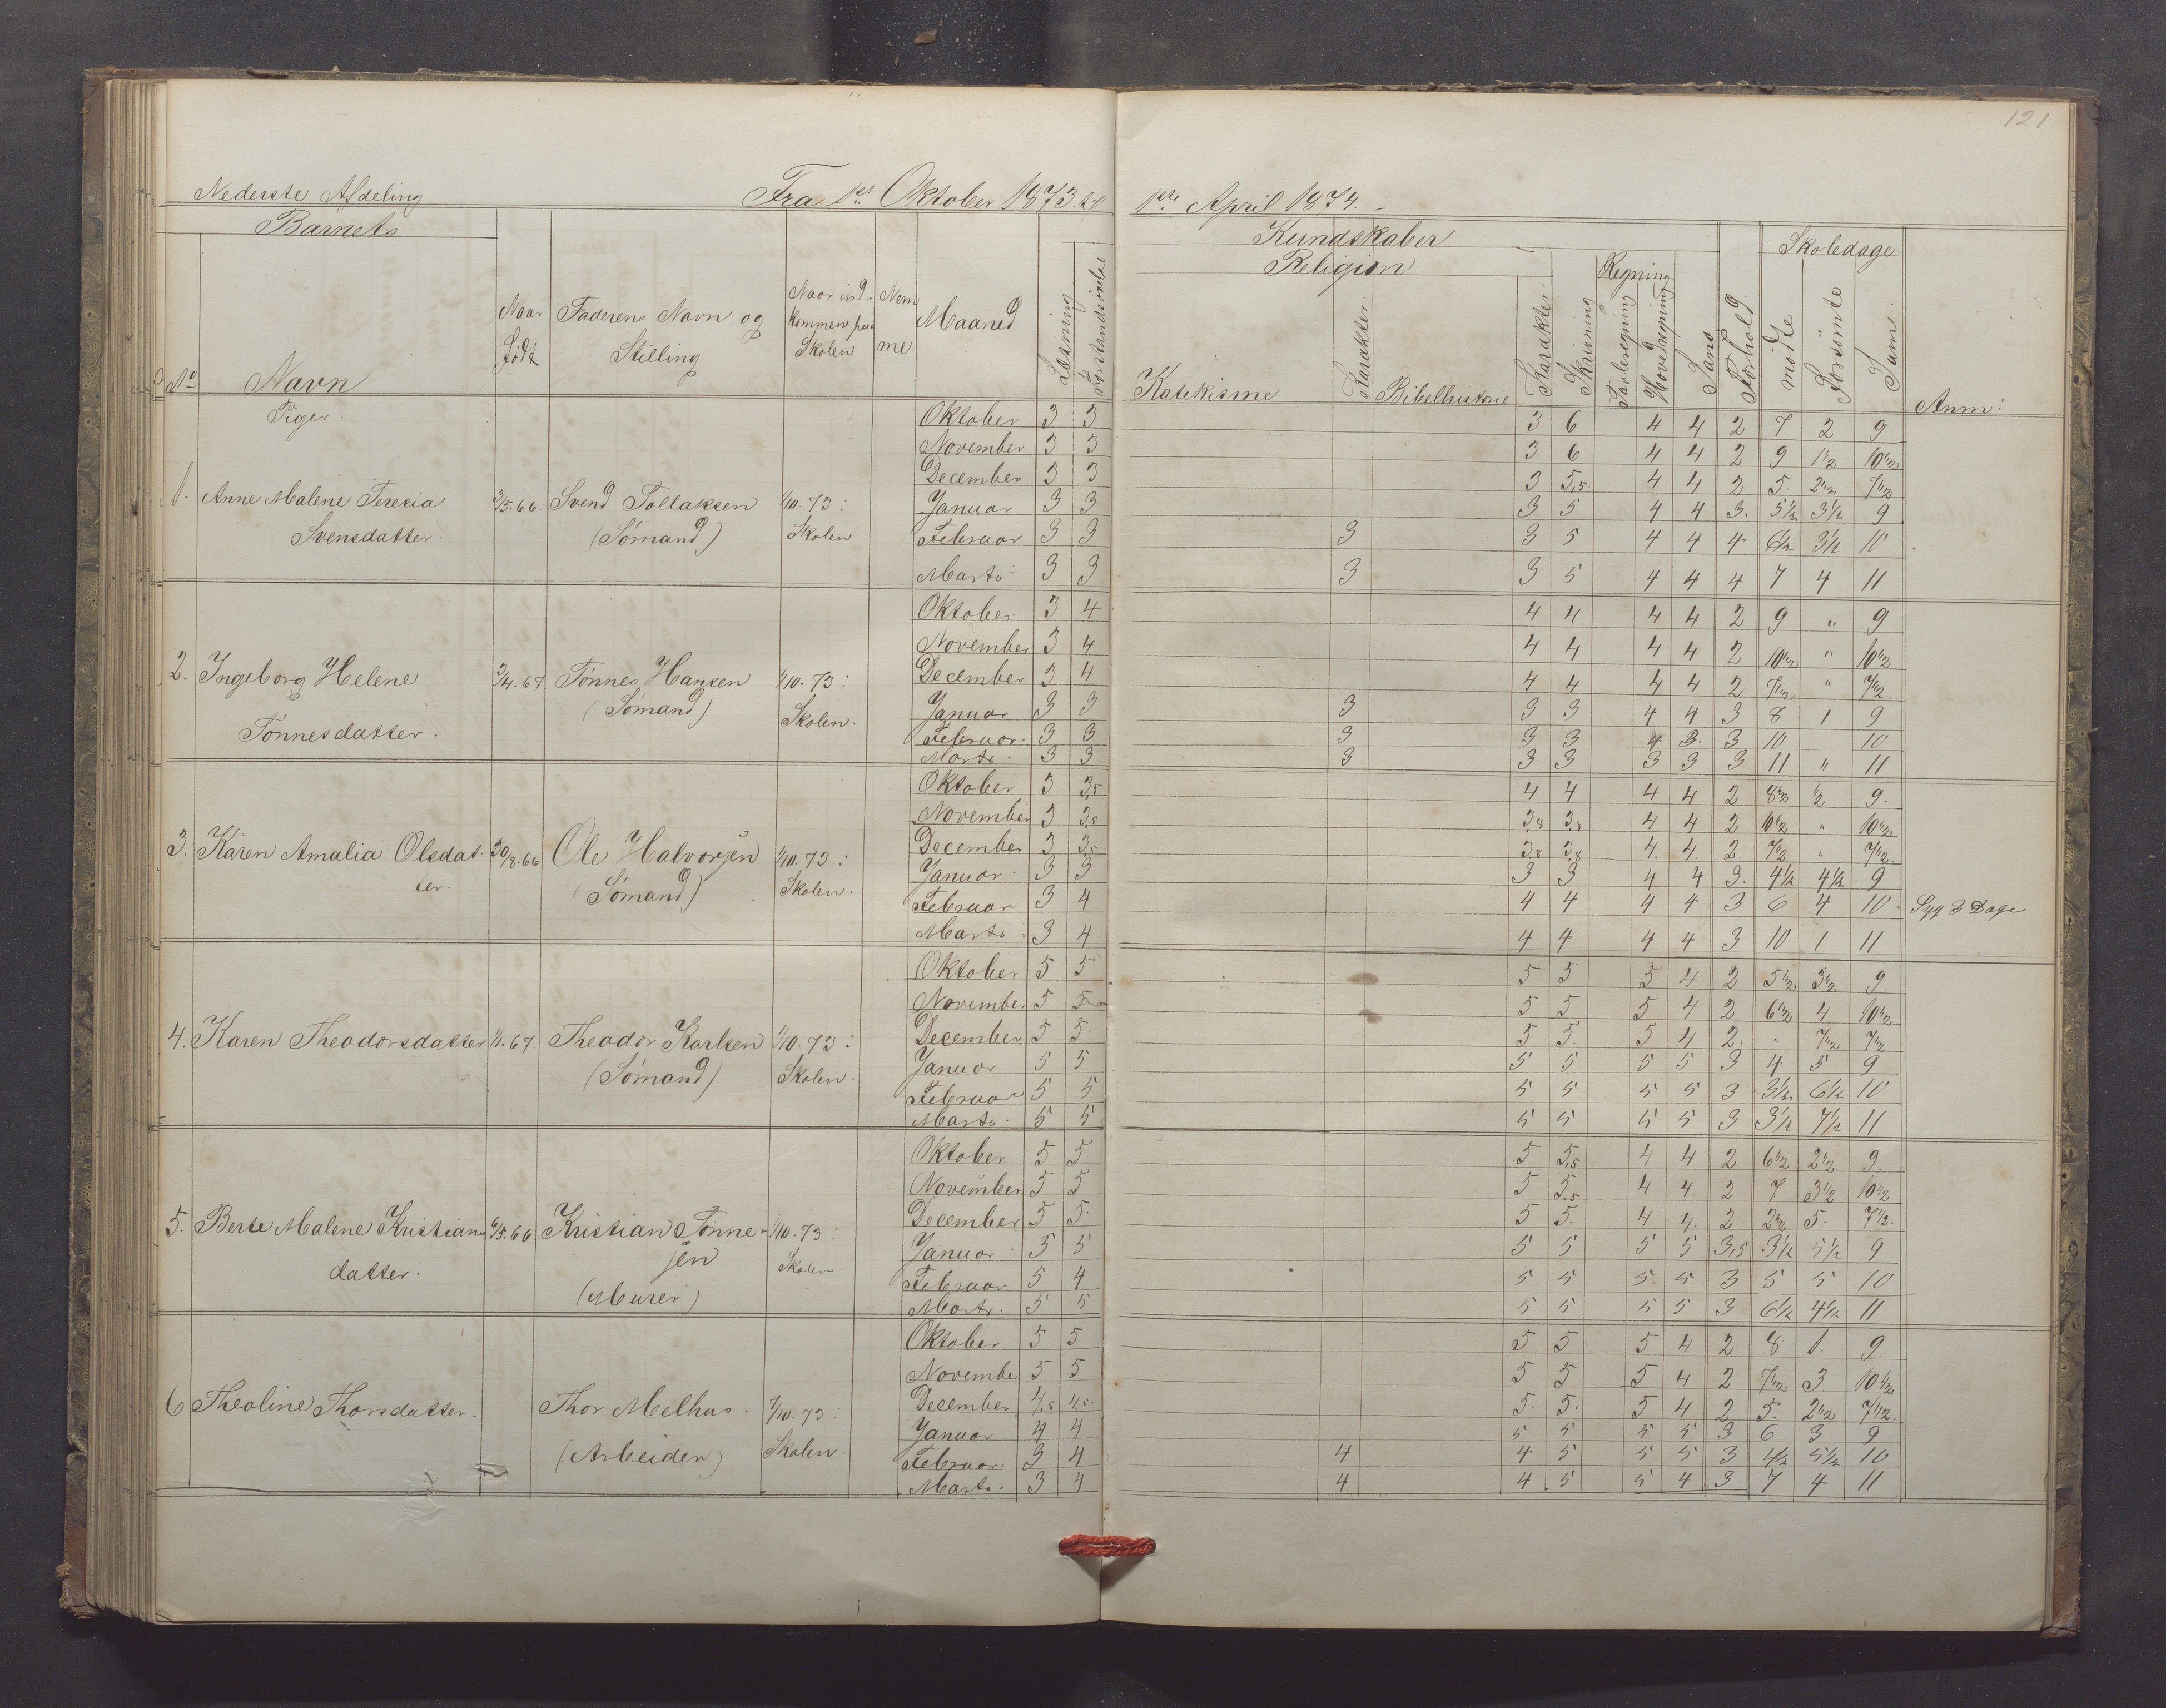 121
Nederste Afdeling Fra 1ste Oktober 1873 til 1ste April 1874.
Barnets Kundskaber Skoledage
Religion Regning
No Navn Naar Født Faderens Navn og Stilling Naar ind- kommen paa Skolen Maaned Læsning Forstandsøvelse Katekisme Karakter Bibelhistorie Karakter Skrivning Tavleregning Hovedregning Sans Forhold møtte Forsømte Sum Anm:
Piger
Oktober 3 3 3 6 4 4 2 7 2 9
November 3 3 3 6 4 4 2 9 1 1/2 10 1/2
December 3 3 3 5,5 4 4 2 5 2 1/2 7 1/2
1. Anne Malene Teresia 3/5.66. Svend Tollaksen 1/10.73: Januar 3 3 3 5 4 4 3. 5 1/2 3 1/2 9
Svensdatter. (Sømand) Skolen Februar 3 3 3 3 5 4 4 4 6 1/2 3 1/2 10
Marts 3 3 3 3 5 4 4 4 7 4 11
Oktober 3 4 4 4 4 4 2 9 " 9
November 3 4 4 4 4 4 2 10 1/2 " 10 1/2
2. Ingeborg Helene 3/4.67 Tønnes Hansen 1/10.73: December 3 4 4 4 4 4 2 7 1/2 " 7 1/2
(Sømand) Skolen. Januar 3 3 3 3 3 4 4 3 8 1 9
Tønnesdatter. Februar. 3 3 3 3 3 4 3. 3 10 10
Marts. 3 3 3 3 3 3 3 3 11 " 11
Oktober 3 3,5 4 4 4 4 2 8 1/2 1/2 9.
November 3 3,8 3,8 3,8 4 4 2 10 1/2 " 10 1/2
3. Karen Amalia Olsdat- 30/8.66 Ole Halvorsen 1/10.73: December 3 3,5 3,8 3,8 4. 4. 2. 7 1/2 " 7 1/2
ter. (Sømand) Skolen. Januar 3 3 3 3 4 4 3. 4 1/2 4 1/2 9
Februar 3 4 4 4 4 4 3 6 4 10 Syg 3 Dage
Marts. 3 4 4 4 4 4 3 10 1 11
Oktober 5 5 5 5 5 4 2 5 1/2 3 1/2 9.
November 5 5 5 5 5 4 2 6 1/2 4 10 1/2
4. Karen Theodorsdatter 1/1.67 Theodor Karlsen 1/10.73: December 5 5. 5 5. 5 4 2. " 7 1/2 7 1/2
(Sømand) Skolen. Januar 5 5 5 5 5 5 3 4 5 9
Februar 5 5 5 5 5 5 3 3 1/2 6 1/2 10
Marts. 5 5 5 5 5 5 3 3 1/2 7 1/2 11
Oktober 5 5 5 5,5 4 4 2 6 1/2 2 1/2 9.
November 5 5 5 5,5 4 4 2 7 3 1/2 10 1/2
5. Berte Malene Kristians 6/5.66 Kristian Tønne- 1/10.73: December 5 5. 5 5. 4 4. 2. 2 1/2 5. 7 1/2.
datter. sen Skolen. Januar 5 5 5 5 5 5 3,5 3 1/2 5 1/2 9
(Murer) Februar 5 4 5 5 5 5 3 5 5 10
Marts. 5 5 5 5 5 5 3 6 1/2 4 1/2 11
Oktober 5 5 5 5 5 4 2 8 1. 9.
November 5 5 5 5 5 4 2 7 1/2 3. 10 1/2
6 Theoline Thorsdatter. Thor Melhus. 1/10.73: December 4,5 4,5. 5. 5. 5 4 2 5. 2 1/2 7 1/2.
Januar 4 4 5 5 5 5 3 6 3 9
(Arbeider) Skolen. Februar. 3 4 4 4 5 5 5 3 4 1/2 5 1/2 10
Marts. 3 4 4 4 5 5 4 3 7 4 11